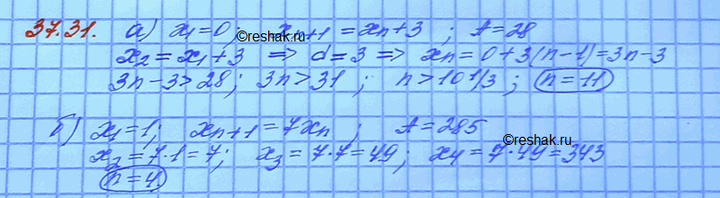 37.31. а) x₁=0; xₙ₊₁=xₙ+3; A=28
x₂=x₁+3 ⇒ d=3 ⇒ xₙ=0+3(n-1)=3n-3
3n-3>28; 3n>31; n>10 1/3; n=11
б) x₁=1; xₙ₊₁=7xₙ; A=285
x₂=7·1=7; x₃=7·7=49; x₄=7·49=343
n=4
©reshak.ru
©reshak.ru